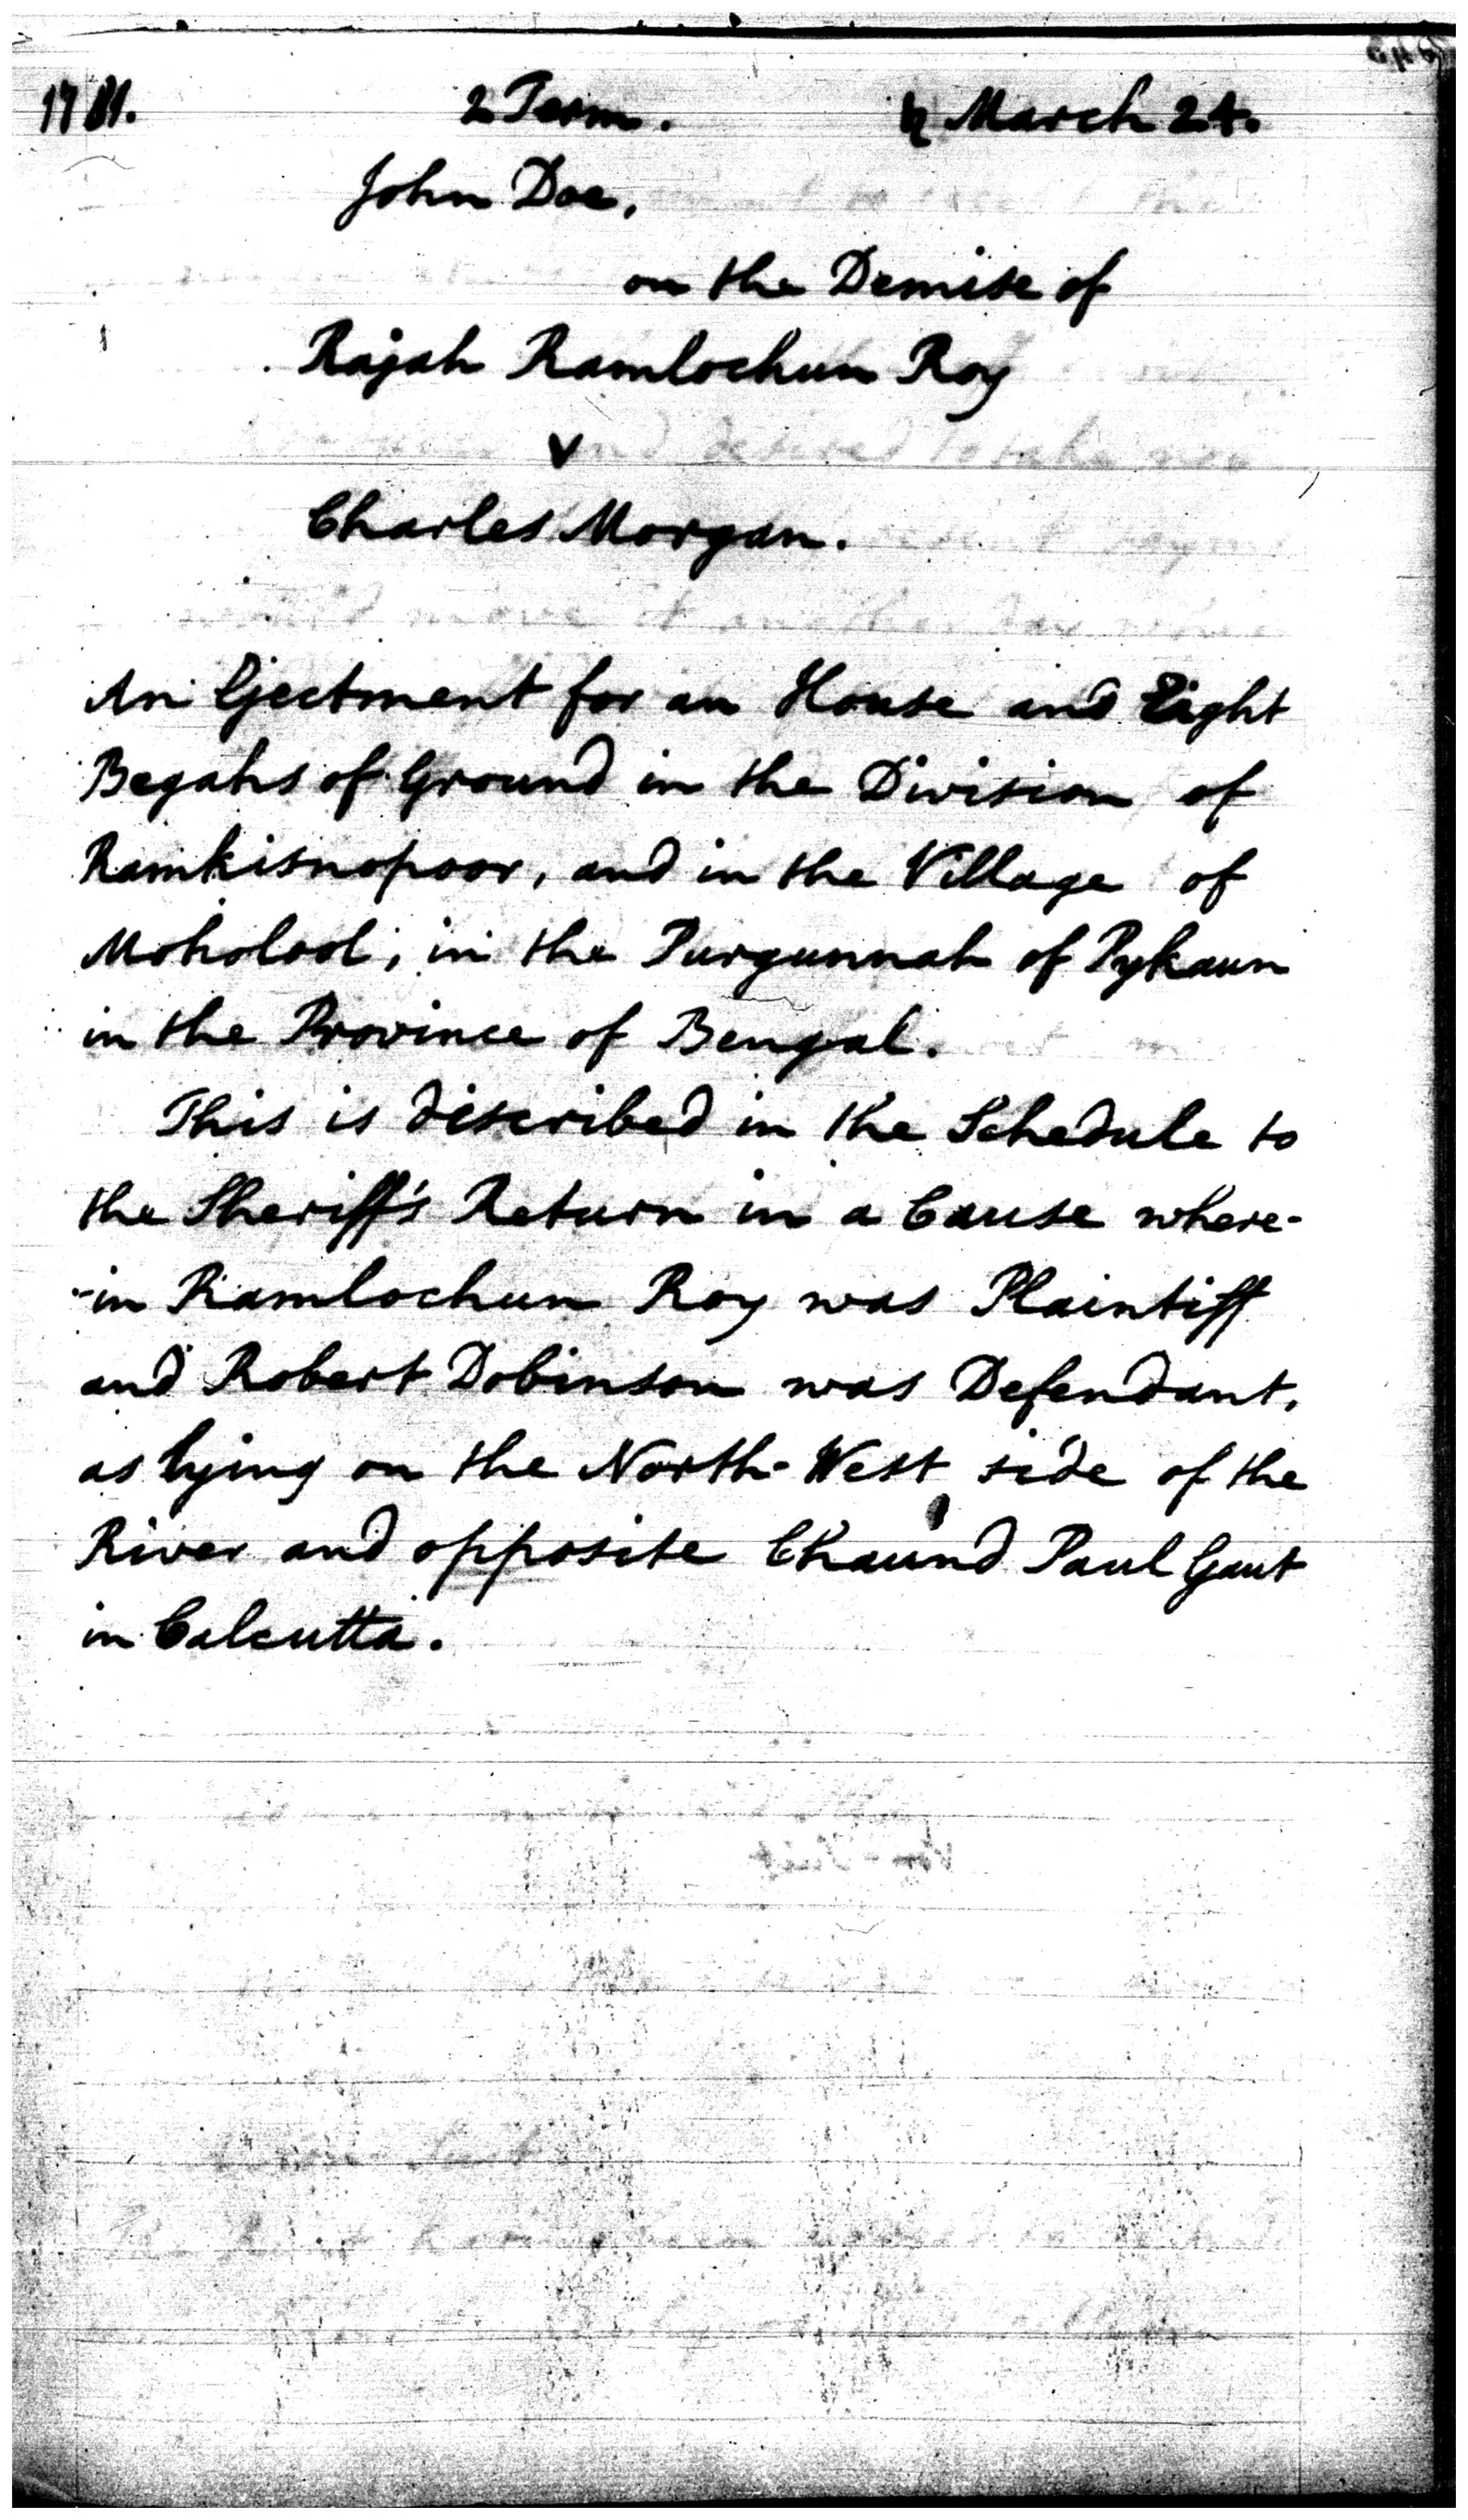 1781. 2 Term. ♄ March 24.
John Doe,
on the Demise of
Rajah Ramlochun Roy
v
Charles Morgan.
An Ejectment for an House and Eight
Begahs of Ground in the Division of
Ramkisnopoor, and in the Village of
Moholool; in the Purgunnah of Pykaun
in the Province of Bengal.
This is described in the Schedule to
the Sheriff's Return in a Cause where-
-in Ramlochun Roy was Plaintiff
and Robert Dobinson was Defendant,
as lying on the North-West side of the
River and opposite Chaund Paul Gaut
in Calcutta.